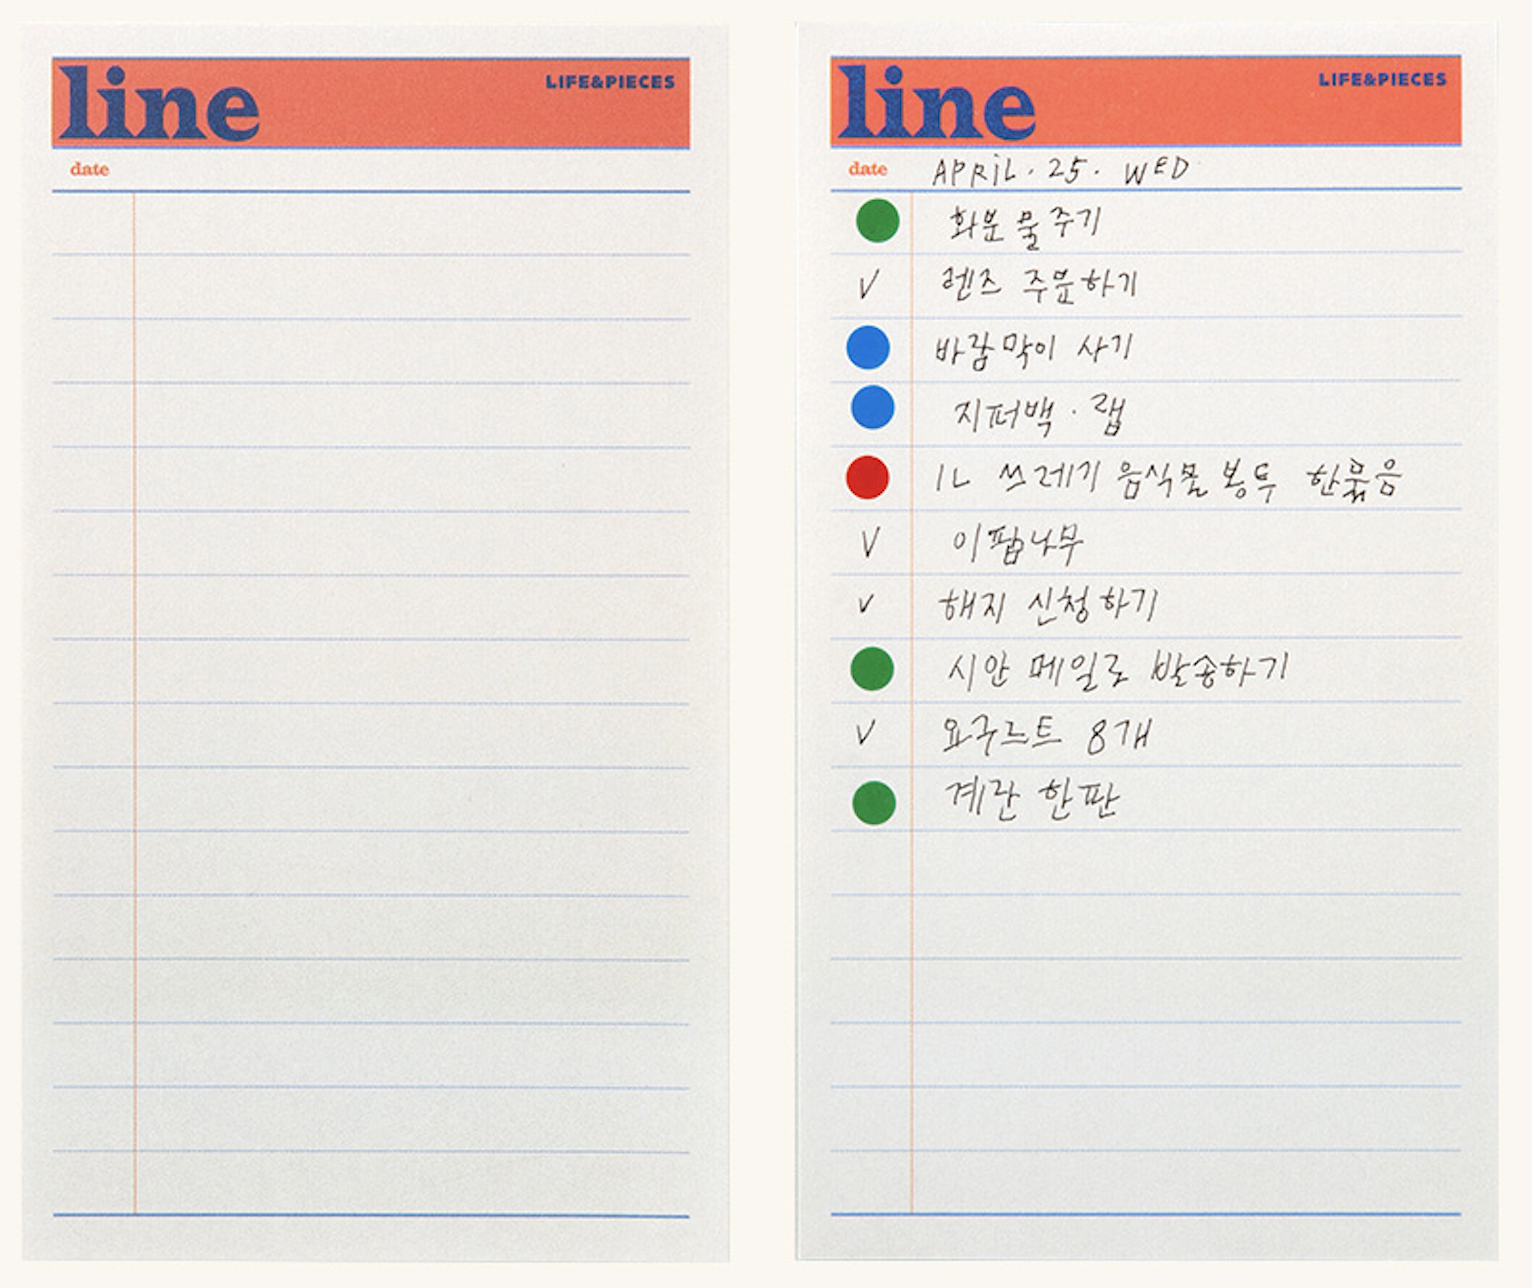 line
LIFE&PIECES
date
line
LIFE&PIECES
date APRIL. 25. WED
화분 물주기
V 렌즈 주문하기
바람막이 사기
지퍼백 · 랩
1L 쓰레기 음식물 봉투 한묶음
V 이팝나무
V 해지 신청하기
시안 메일로 발송하기
V 요구르트 8개
계란 한판